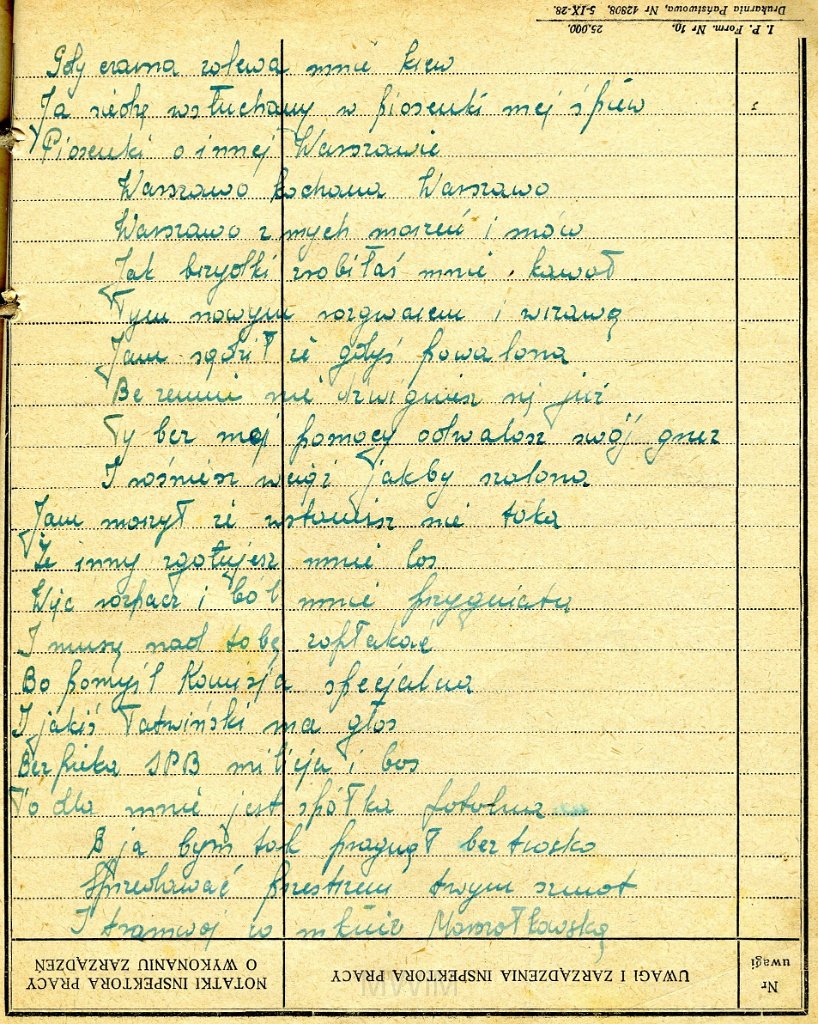 I. P. Form. Nr 10. 25.000.
Drukarnia Państwowa, Nr 12808. 5-IX-28.
Gdy czarna zalewa mnie krew
Ja siedzę wsłuchany w piosenki mej śpiew
Piosenki o innej Warszawie
Warszawo kochana Warszawo
Warszawo z mych marzeń i snów
Jak brzydki zrobiłaś mnie kawał
Tym nowym rozgwarem i wrzawą
Jam sądził że gdyś powalona
Beze mnie nie dźwigniesz się już
Ty bez mej pomocy odwalasz swój gruz
I rośniesz wciąż jakby szalona
Jam marzył że wstaniesz nie taka
Że inny zgotujesz mnie los
Więc rozpacz i ból mnie przygniata
I muszę nad tobą zapłakać
Bo pomyśl Komisja specjalna
I jakiś Łatwiński ma głos
Bezpieka SPB milicja i bos
To dla mnie jest spółka fatalna
A ja bym tak pragnął bez troska
Sprzedawać przestrzeni twym szmat
I tramwaj co mknie Marszałkowską
NOTATKI INSPEKTORA PRACY O WYKONANIU ZARZĄDZEŃ
UWAGI I ZARZĄDZENIA INSPEKTORA PRACY
Nr uwagi